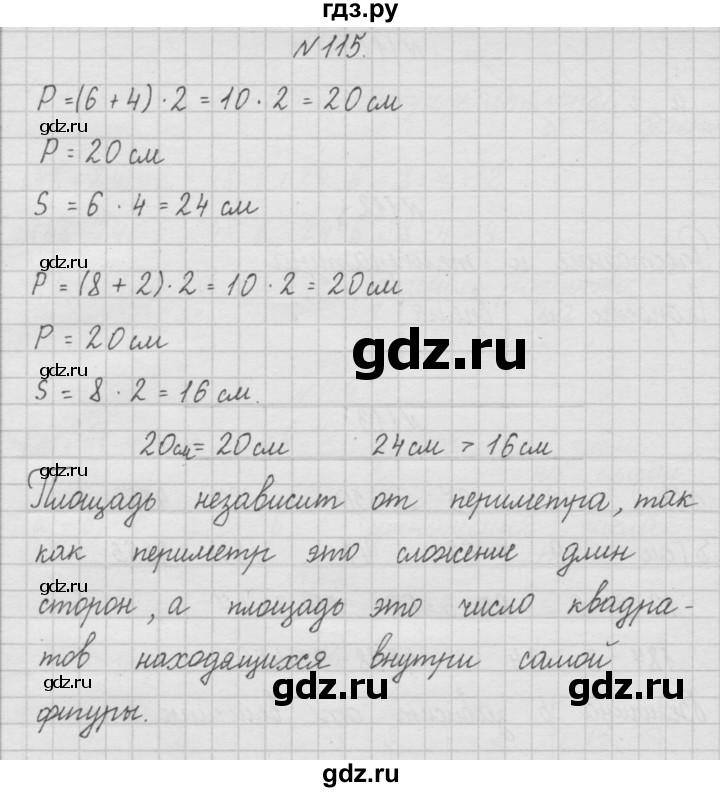 гдз.ру
N 115.
P = (6 + 4) · 2 = 10 · 2 = 20 см
gdz.ru
P = 20 см
S = 6 · 4 = 24 см
gdz.ru
P = (8 + 2) · 2 = 10 · 2 = 20 см
P = 20 см
gdz.ru
gdz.ru
S = 8 · 2 = 16 см.
20 см = 20 см 24 см > 16 см
gdz.ru
Площадь независит от периметра, так
как периметр это сложение длин
gdz.ru
сторон, а площадь это число квадра-
тов находящихся внутри самой
gdz.ru gdz.ru gdz.ru
фигуры.
gdz.ru